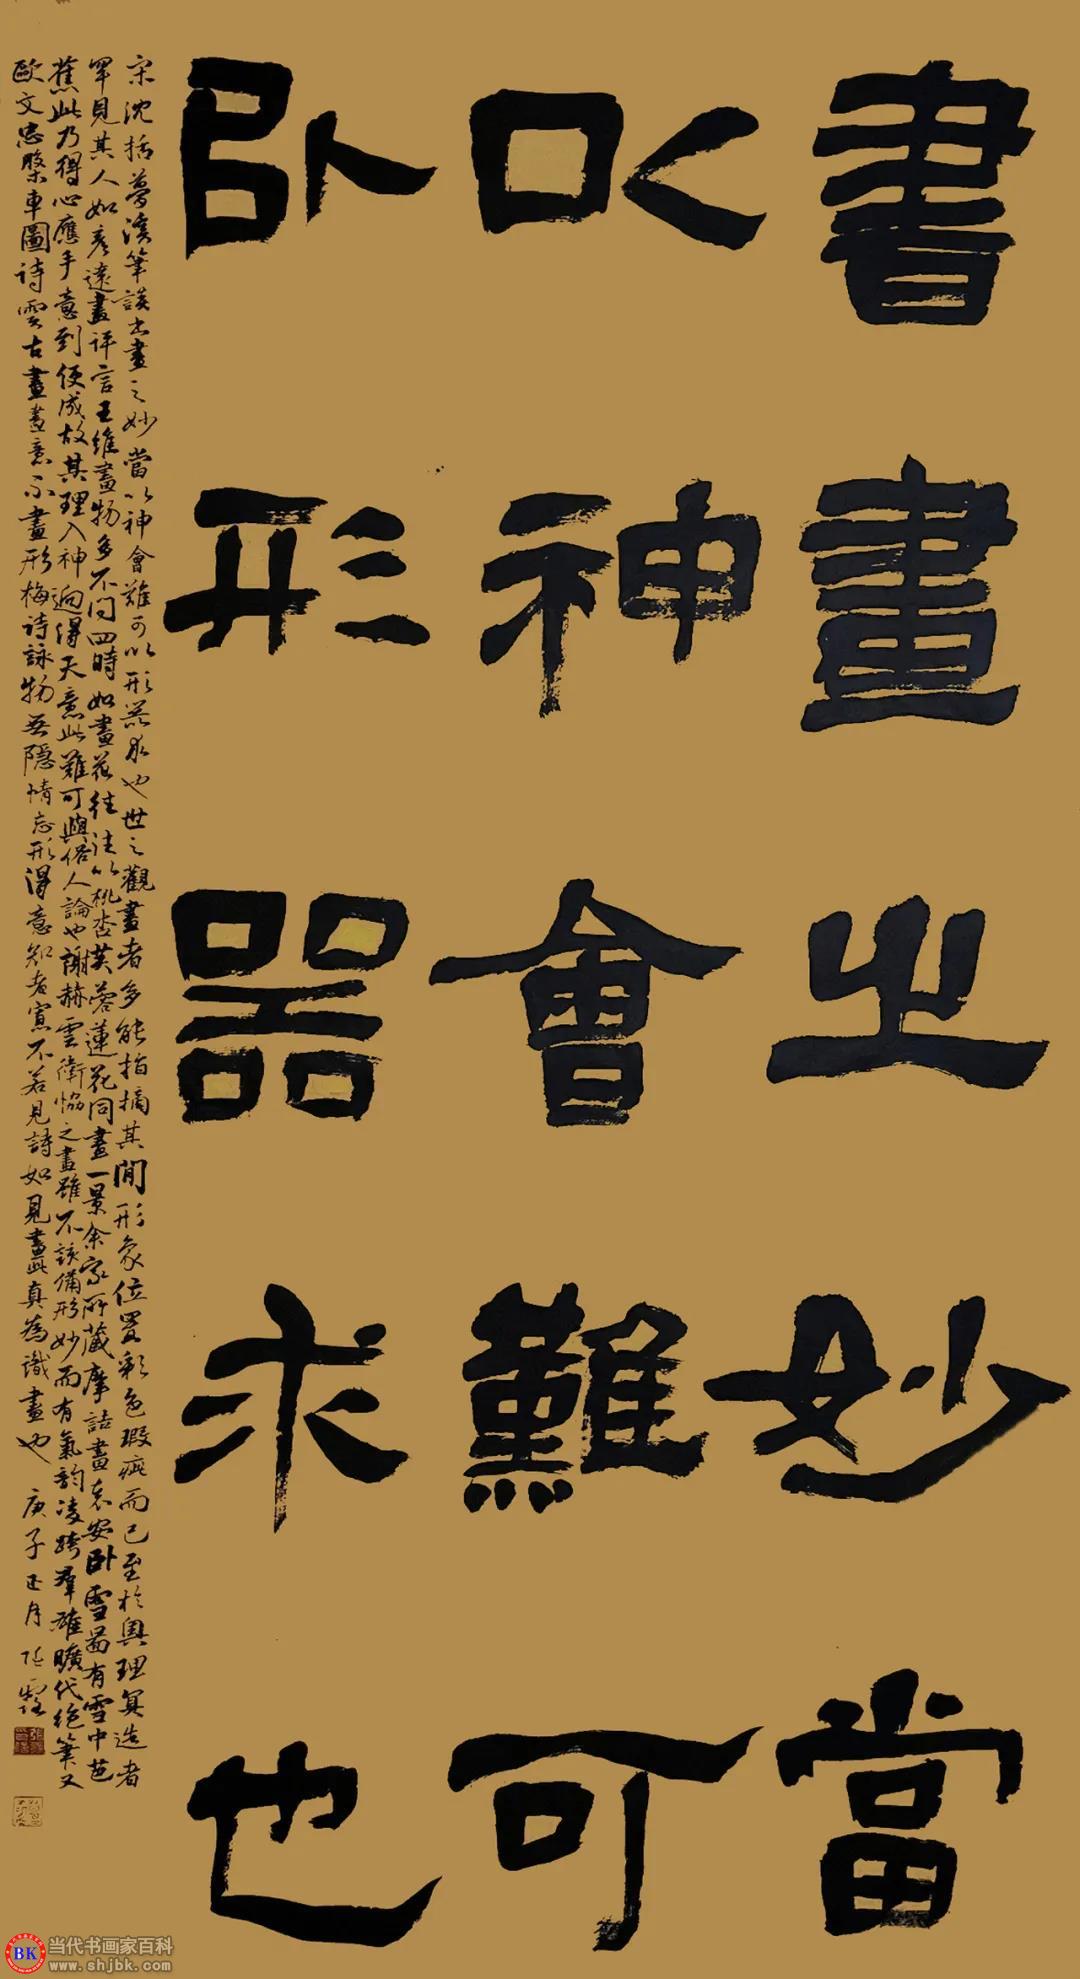 書畫之妙當
以神會難可
以形器求也
宋沈括夢溪筆談書畫之妙當以神會難可以形器求也世之觀畫者多能指摘其間形象位置彩色瑕疵而已至於奧理冥造者
罕見其人如彥遠畫評言王維畫物多不問四時如畫花往往以桃杏芙蓉蓮花同畫一景余家所藏摩詰畫袁安臥雪啚有雪中芭
蕉此乃得心應手意到便成故其理入神迥得天意此難可與俗人論也謝赫雲衛協之畫雖不該備形妙而有氣韵凌跨群雄曠代絕筆又
歐文忠盤車圖詩雲古畫畫意不畫形梅詩詠物無隱情忘形得意知者寡不若見詩如見畫此真為識畫也 庚子正月
BK 当代书画家百科
www.shjbk.com